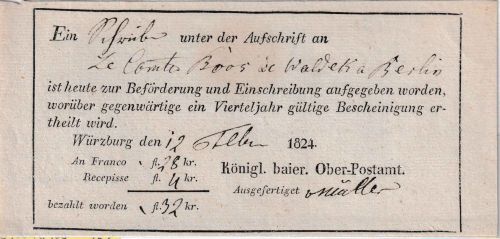 Ein Schreiben unter der Aufschrift an
Le Comte Boos de Waldek a Berlin
ist heute zur Beförderung und Einschreibung aufgegeben worden,
worüber gegenwärtige ein Vierteljahr gültige Bescheinigung er-
theilt wird.
Würzburg den 12 1824.
An Franco fl. 28 kr.
Recepisse fl. 4 kr.
Königl. baier. Ober-Postamt.
bezahlt worden fl. 32 kr.
Ausgefertiget Müller